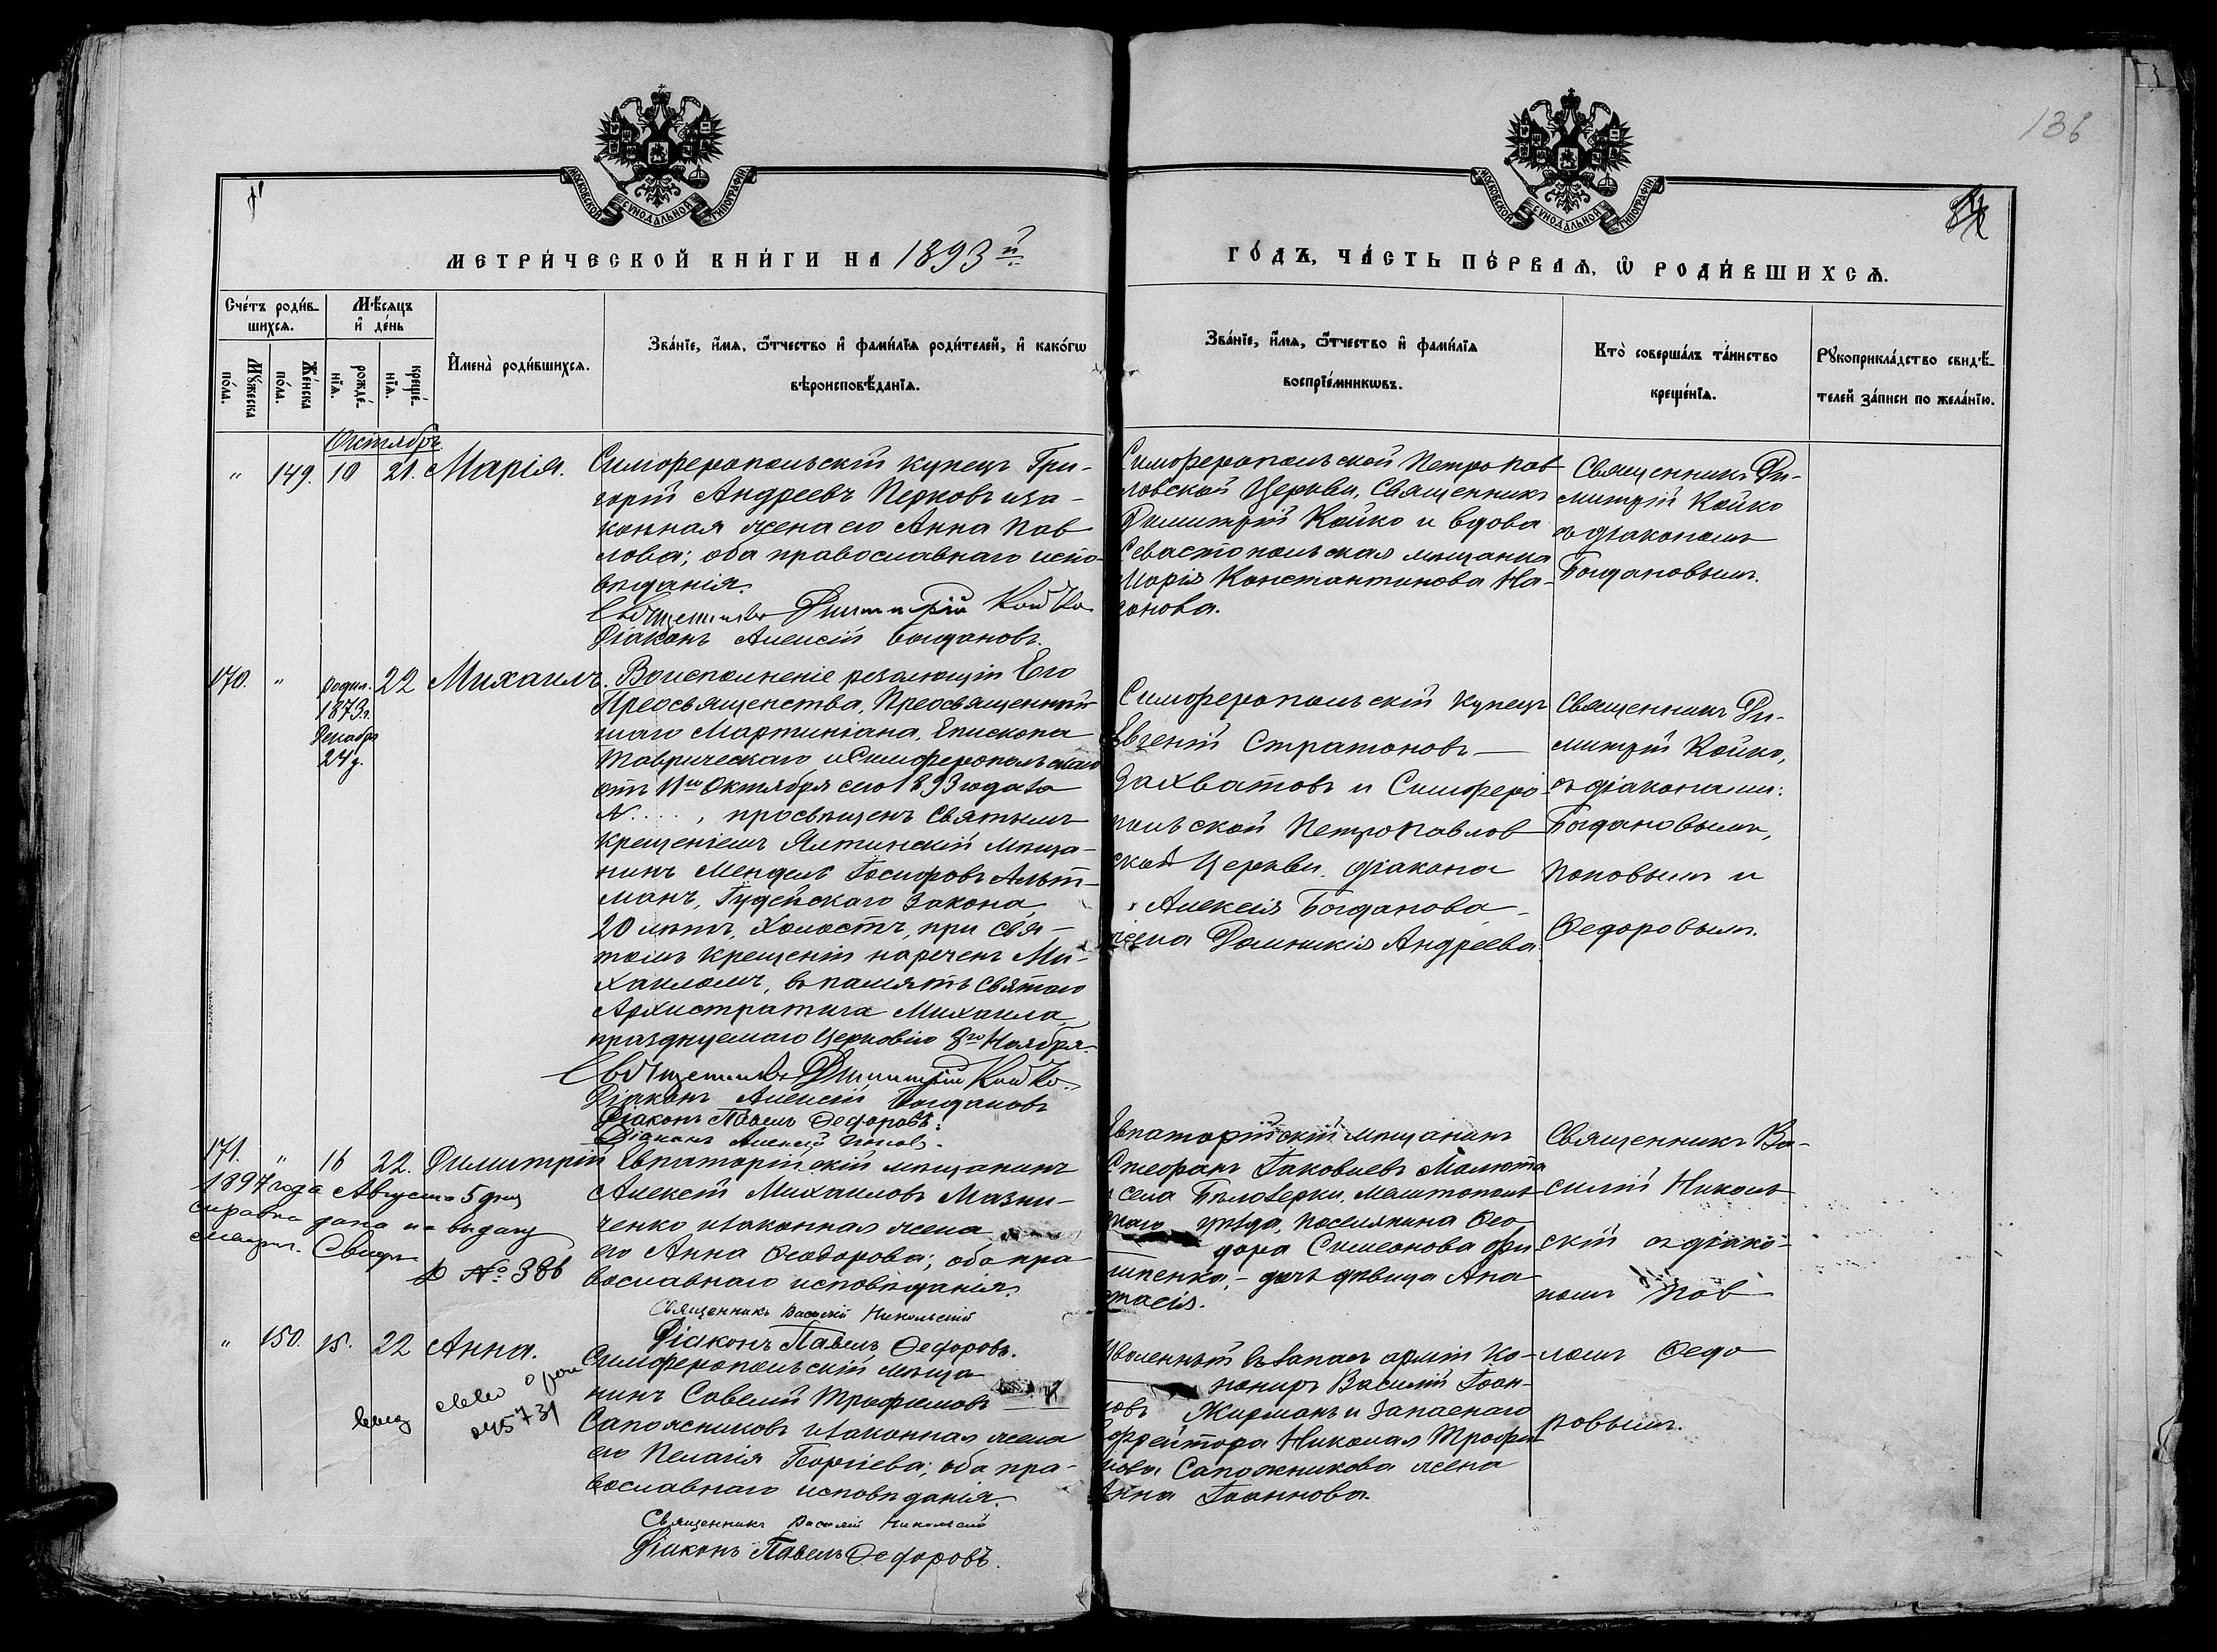 136
МОСКОВСКОЙ СУНОДАЛЬНОЙ ТИПОГРАФІИ
МОСКОВСКОЙ СУНОДАЛЬНОЙ ТИПОГРАФІИ
МЕТРИ́ЧЕСКОЙ КНИ́ГИ НА 1893 й
ГО́ДЪ, ЧА́СТЬ ПЕ́РВАѦ, Ѡ РОДИ́ВШИХСѦ.
Сче́тъ роди́в-
шихсѧ.
Мѣ́сяцъ
и де́нь
Му́жеска
по́ла.
Же́нска
по́ла.
рожде́-
нїѧ.
креще́-
нїѧ.
Имена̀ роди́вшихсѧ.
Зва́нїе, и́мѧ, ѻ́тчество и фами́лїѧ роди́телей, и како́гѡ
вѣроисповѣ́данїѧ.
Зва́нїе, и́мѧ, ѻ́тчество и фами́лїѧ
воспрїе́мникѡвъ.
Кто̀ соверша́лъ та́инство
креще́нїѧ.
Рꙋкоприкла́дство свидѣ́-
телей за́писи по жела́нїю.
Октябрь
" 149. 10 21. Марія.
Симферопольскій купецъ Гри-
горій Андреевъ Перковъ иза-
конная жена его Анна Пав
лова; оба православнаго испо-
вѣданія.
Священникъ Димитрій Койко
Діаконъ Алексій Богдановъ.
Симферопольской Петропав
ловской Церкви, Священникъ
Димитрій Койко и вдова
Севастопольская мѣщанка
Марія Константинова На-
конова.
Священникъ Ди-
митрій Койко
съ діакономъ
Богдановымъ.
170. " родил. 22 Михаилъ.
1873 г.
Декабря
24 д.
Воисполненіе резолюціи Его
Преосвященства, Преосвященнѣй-
шаго Мартиніана, Епископа
Таврическаго и Симферопольскаго
отъ 11го Октября сего 1893 года за
№ ...., просвѣщенъ Святымъ
крещеніемъ Ялтинскій мѣща-
нинъ Мендель Іосифовъ Альт-
манъ, Іудейскаго закона,
20 лѣтъ, холостъ, при свя-
томъ крещеніи нареченъ Ми-
хаиломъ, въ память Святаго
Архистратига Михаила,
празднуемаго Церковію 8го Ноября.
Священникъ Димитрій Койко.
Діаконъ Алексій Богдановъ
Діаконъ Павелъ Федоровъ.
Діаконъ Алексій Поповъ.
Симферопольскій купецъ
Евгеній Стратоновъ —
Захватовъ и Симферо-
польской Петропавлов
ской Церкви, діакона
Алексія Богданова
жена Домникія Андреева
Священникъ Ди-
митрій Койко,
съ діаконами:
Богдановымъ,
Поповымъ и
Федоровымъ.
171. " 16 22. Димитрій
1897 года Августа 5 дня
справка дана на выдачу
метрич. Свидѣт.
№ 386
Евпаторійскій мѣщанинъ
Алексій Михаиловъ Мазни-
ченко изаконная жена
его Анна Феодорова; оба пра-
вославнаго исповѣданія.
Священникъ Василій Никольскій
Діаконъ Павелъ Федоровъ.
Евпаторійскій мѣщанинъ
Стефанъ Іаковлевъ Малюта
и села Бѣлозерки, Мелитополь
скаго уѣзда, поселянина Фео
дора Симеонова
— дочь дѣвица Ана
стасія.
Священникъ Ва-
силій Николь
скій съ діако-
номъ Пав
ломъ Федо
ровымъ.
" 150. 15. 22 Анна.
Симферопольскій мѣща
нинъ Савелій Трофимовъ
Сапожниковъ изаконная жена
его Пелагія Георгіева; оба пра-
вославнаго исповѣданія.
Священникъ Василій Никольскій
Діаконъ Павелъ Федоровъ.
Уволенный въ запасъ арміи ка-
нониръ Василій Іоан-
новъ Жирманъ и запаснаго
ефрейтора Николая Трофи-
мова Сапожникова жена
Анна Іоаннова.